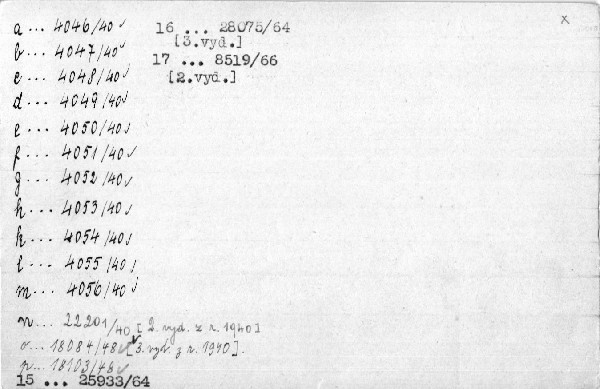 a ... 4046/40 ✓
b ... 4047/40 ✓
c ... 4048/40 ✓
d ... 4049/40 ✓
e ... 4050/40 ✓
f ... 4051/40 ✓
g ... 4052/40 ✓
h ... 4053/40 ✓
k ... 4054/40 ✓
l ... 4055/40 ✓
m ... 4056/40 ✓
n ... 22201/40 [2. vyd. z r. 1940]
o ... 18084/48 ✓ [3. vyd. z r. 1940].
p ... 18103/48 ✓
15 ... 25933/64
16 ... 28075/64
[3.vyd.]
17 ... 8519/66
[2.vyd.]
x